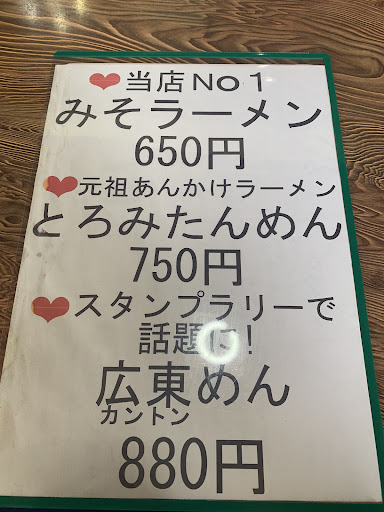 ❤当店No1
みそラーメン
650円
❤元祖あんかけラーメン
とろみたんめん
750円
❤スタンプラリーで
話題に!
広東めん
カントン
880円